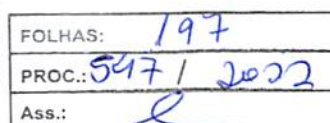 FOLHAS: 197
PROC.: 547 / 2022
Ass.: